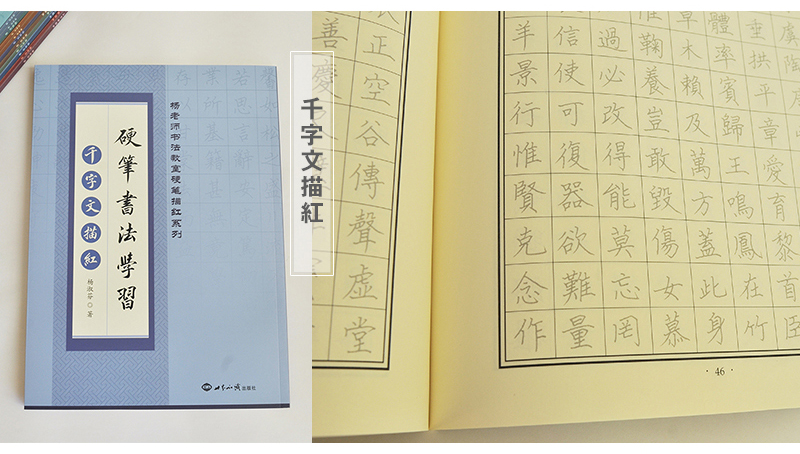 楊老师书法教室硬笔描红系列
硬筆書法學習
千字文描紅
杨淑芬○著
世界知识出版社
千字文描紅
正空谷傳聲虛堂
善慶
虞陶
垂拱平章愛育黎首臣
體率賓歸王鳴鳳在竹
草木賴及萬方蓋此身
惟鞠養豈敢毀傷女慕
過必改得能莫忘罔
信使可復器欲難量
羊景行惟賢克念作
· 46 ·